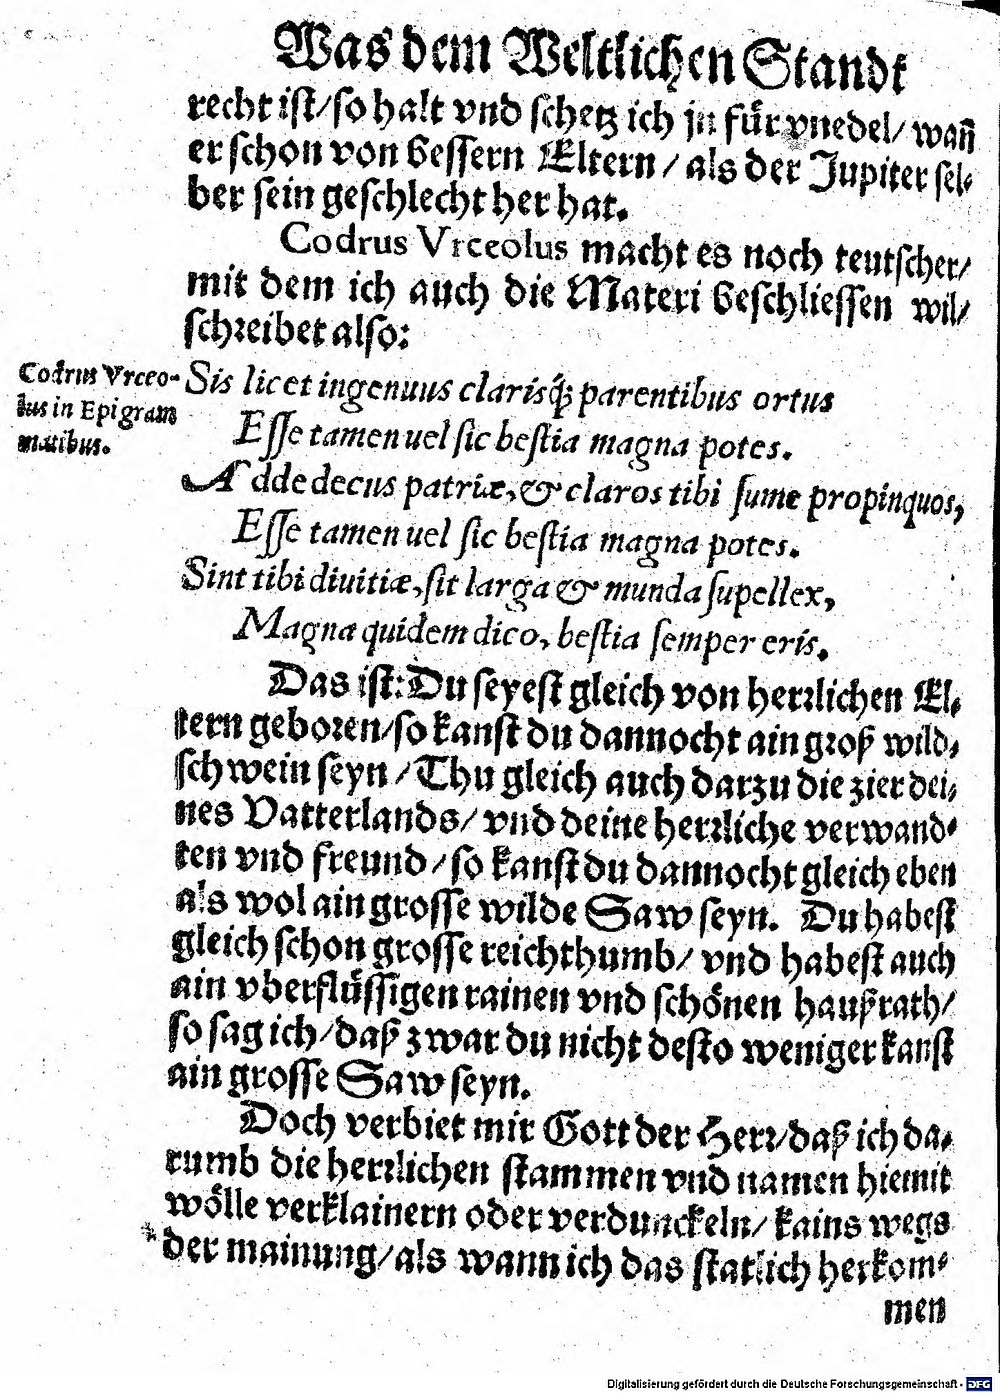 Was dem Weltlichen Standt
recht ist/so halt vnd schetz ich jn für vnedel/ wañ
er schon von bessern Eltern / als der Jupiter sel⸗
ber sein geschlecht her hat.
Codrus Vrceolus macht es noch teutscher/
mit dem ich auch die Materi beschliessen wil/
schreibet also:
Codrus Vrceo-
lus in Epigram
matibus.
Sis licet ingenuus clarisq́; parentibus ortus
Esse tamen uel sic bestia magna potes.
Adde decus patriæ, & claros tibi sume propinquos,
Esse tamen uel sic bestia magna potes.
Sint tibi diuitiæ, sit larga & munda supellex,
Magna quidem dico, bestia semper eris.
Das ist: Du seyest gleich von herrlichen El⸗
tern geboren/so kanst du dannocht ain groß wild⸗
schwein seyn / Thu gleich auch darzu die zier dei⸗
nes Vatterlands/ vnd deine herrliche verwand⸗
ten vnd freund / so kanst du dannocht gleich eben
als wol ain grosse wilde Saw seyn. Du habest
gleich schon grosse reichthumb/ vnd habest auch
ain vberflüssigen rainen vnd schönen haußrath/
so sag ich/daß zwar du nicht desto weniger kanst
ain grosse Saw seyn.
Doch verbiet mir Gott der Herr/daß ich da⸗
rumb die herrlichen stammen vnd namen hiemit
wölle verklainern oder verdunckeln/ kains wegs
der mainung/als wann ich das statlich herkom⸗
men
Digitalisierung gefördert durch die Deutsche Forschungsgemeinschaft - DFG